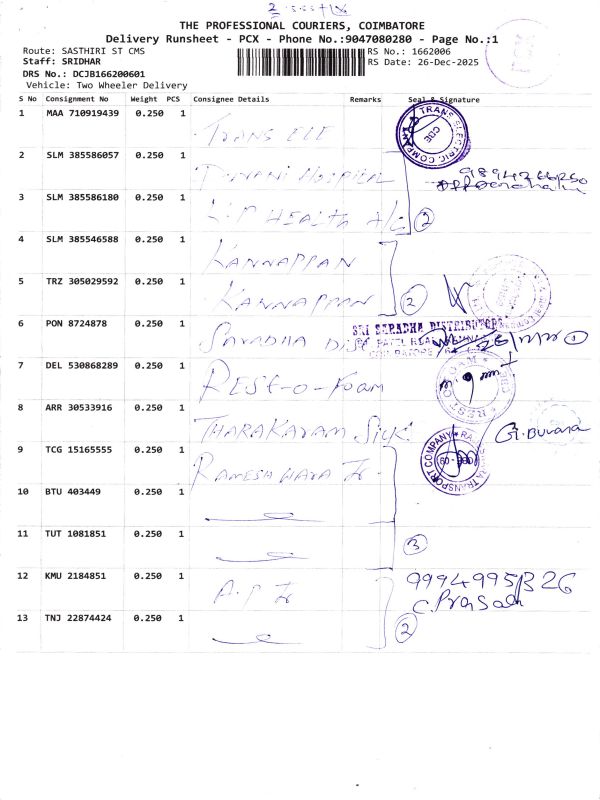 THE PROFESSIONAL COURIERS, COIMBATORE
Delivery Runsheet - PCX - Phone No.:9047080280 - Page No.:1
Route: SASTHIRI ST CMS RS No.: 1662006
Staff: SRIDHAR RS Date: 26-Dec-2025
DRS No.: DCJB166200601
Vehicle: Two Wheeler Delivery
S No Consignment No Weight PCS Consignee Details Remarks Seal & Signature
1 MAA 710919439 0.250 1 TRANS ELE
TRANS ELECTRIC COMPANY
CBE
2 SLM 385586057 0.250 1 HOSPITAL
3 SLM 385586180 0.250 1 HEALTH
2
4 SLM 385546588 0.250 1 KANNAPPAN
5 TRZ 305029592 0.250 1 KANNAPPAN 2
6 PON 8724878 0.250 1 SARADHA DIST
SRI SARADHA DISTRIBUTORS
1
7 DEL 530868289 0.250 1 REST-O-FOAM
REST O FOAM
CBE
8 ARR 30533916 0.250 1 THARAKARAM SILK
G. Buvana
9 TCG 15165555 0.250 1 RAMESHWARA
TRANSPORT COMPANY
10 BTU 403449 0.250 1
11 TUT 1081851 0.250 1
3
12 KMU 2184851 0.250 1 A.P
9994995326
C. Prasad
13 TNJ 22874424 0.250 1
2